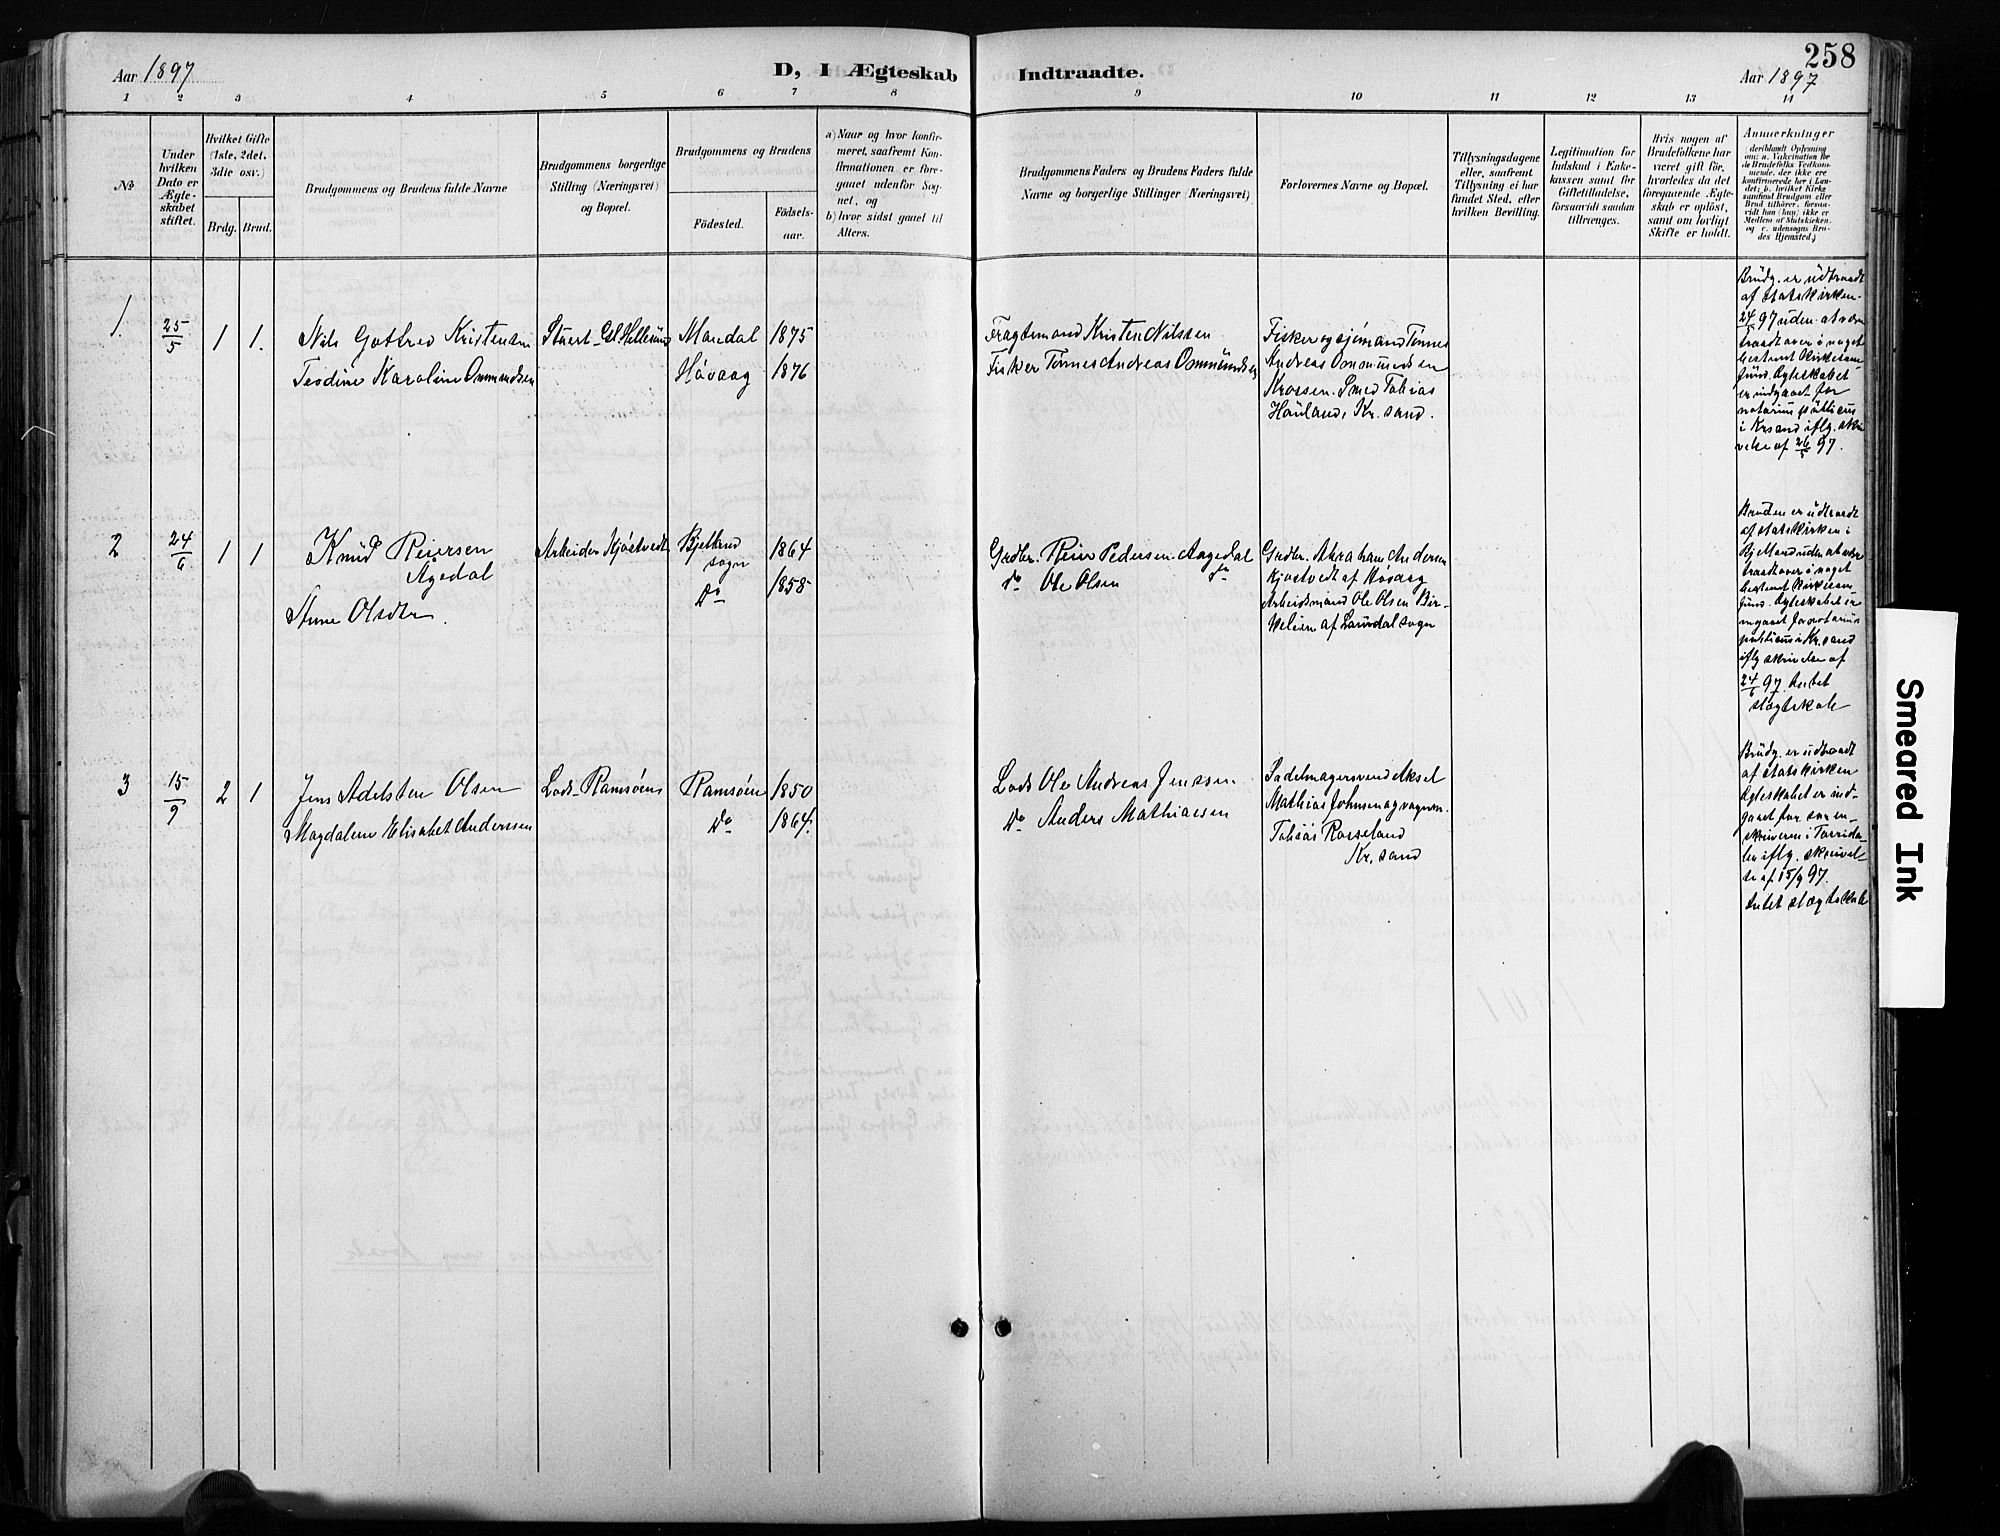 258
Aar 1897
D, I Ægteskab Indtraadte.
Aar 1897
1 2 3 4 5 6 7 8 9 10 11 12 13 14
No
Under
hvilken
Dato er
Ægte-
skabet
stiftet.
Hvilket Gifte
(1ste, 2det,
3die osv.)
Brdg. Brud.
Brudgommens og Brudens fulde Navne
Brudgommens borgerlige
Stilling (Næringsvei)
og Bopæl.
Brudgommens og Brudens
Fødested.
Fødsels-
aar.
a) Naar og hvor konfir-
meret, saafremt Kon-
firmationen er fore-
gaaet udenfor Sog-
net, og
b) hvor sidst gaaet til
Alters.
Brudgommens Faders og Brudens Faders fulde
Navne og borgerlige Stillinger (Næringsvei)
Forlovernes Navne og Bopæl.
Tillysningsdagene
eller, saafremt
Tillysning ei har
fundet Sted, efter
hvilken Bevilling.
Legitimation for
Indskud i Enke-
kassen samt for
Giftetilladelse,
forsaavidt saadan
tiltrænges.
Hvis nogen af
Brudefolkene har
været gift før,
hvorledes da det
foregaaende Ægte-
skab er opløst,
samt om lovligt
Skifte er holdt.
Anmerkninger
(deriblandt Oplysning
om: a. Vakcination for
de Brudefolks Vedkom-
mende, der ikke ere
konfirmerede her i Lan-
det; b. hvilket Kirke-
samfund Brudgom eller
Brud tilhører, forsaa-
vidt han (hun) ikke er
Medlem af Statskirken;
og c. udensogns Bru-
des Hjemsted.)
1 25/5 1 1. Nils Gotfred Kristensen Stuert Gl. Hellesund Mandal 1875
Teodine Karoline Ommundsen Høvaag 1876
Fragtemand Kristen Nilssen
Fisker Tönnes Andreas Ommundsen
Fisker og sjömand Tönnes
Andreas Ommundsen
Krossen. Smed Tobias
Hauland, Kr.sand.
Brudg. er udtraadt
af statskirken
24/5 97 uden at være
traadt over i noget
bestemt kirkesam-
fund. Ægteskabet
er indgaaet for
notarius publicus
i Krsand iflg. skri-
velse af 26/5 97.
2 24/6 1 1 Knud Reiersen Arbeider Kjöstvedt 1864
Aagedal sogn
Anne Olsdtr. Do 1858
Grdbr. Reier Pedersen Aagedal
do Ole Olsen do
Grdbr. Abraham Andersen
Kjöstvedt af Høvaag
Arbeidsmand Ole Olsen Bir-
keleien af Laudal sogn
Bruden er udtraadt
af statskirken i
uden at være
traadt over i noget
bestemt kirkesam-
fund. Ægteskabet er
indgaaet for notarius
publicus i Kr.sand
iflg skrivelse af
24/6 97. Intet
slægtskab
3 15/9 2 1 Jens Adelsten Olsen Lods Ramsöen Ramsöen 1850
Magdalene Elisabet Anderssen Do 1864.
Lods Ole Andreas Jenssen
Do Anders Mathiassen
Sadelmagersvend Aksel
Mathias Johnsen og vognm.
Tobias Rosseland
Kr.sand
Brudg. er udtraadt
af statskirken
Ægteskabet er ind-
gaaet for soren-
skriveren i Torrida-
len iflg. skrivel-
se af 15/9 97.
Intet slægtskab
Smeared Ink